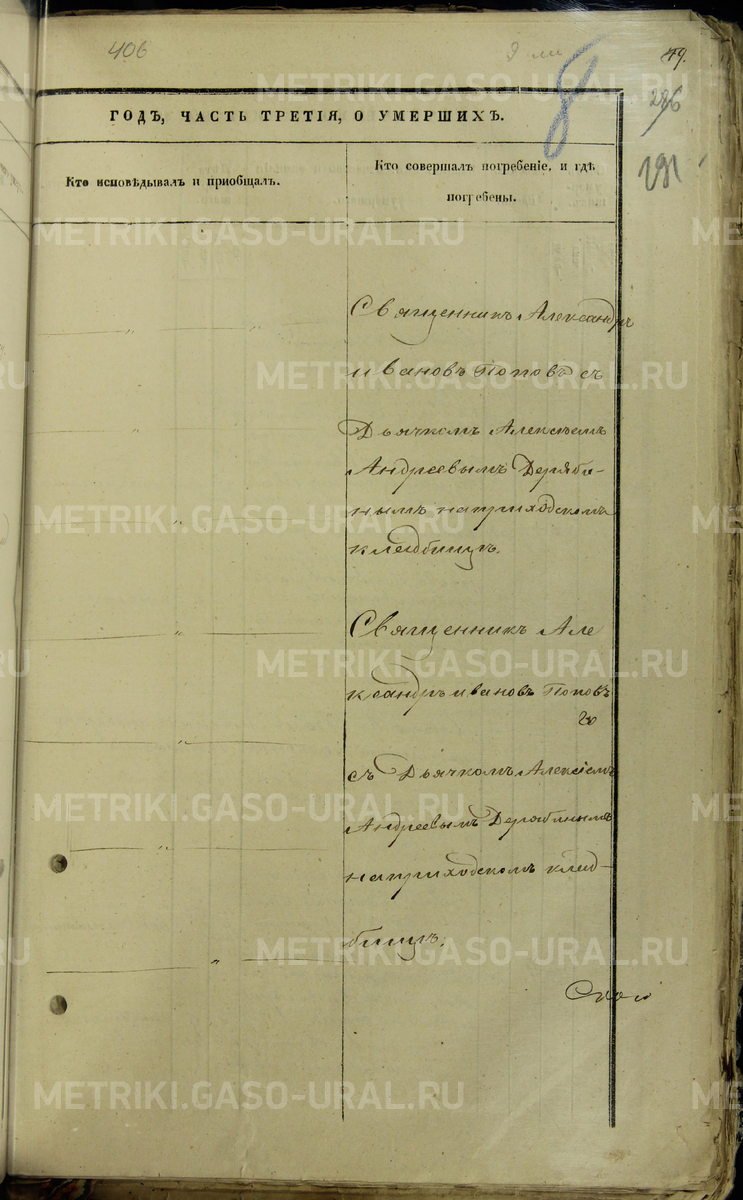 406
49.
286
191
ГОДЪ, ЧАСТЬ ТРЕТІЯ, О УМЕРШИХЪ.
Кто исповѣдывалъ и пріобщалъ.
Кто совершалъ погребеніе, и гдѣ
погребены.
Священникъ Александръ
Ивановъ Поповъ съ
Дьячкомъ Алексѣемъ
Андреевымъ Деряби-
нымъ на приходскомъ
кладбищѣ.
Священникъ Але
ксандръ Ивановъ Поповъ
съ Дьячкомъ Алексіемъ
Андреевымъ Дерябинымъ
на приходскомъ клад-
бищѣ.
METRIKI.GASO-URAL.RU